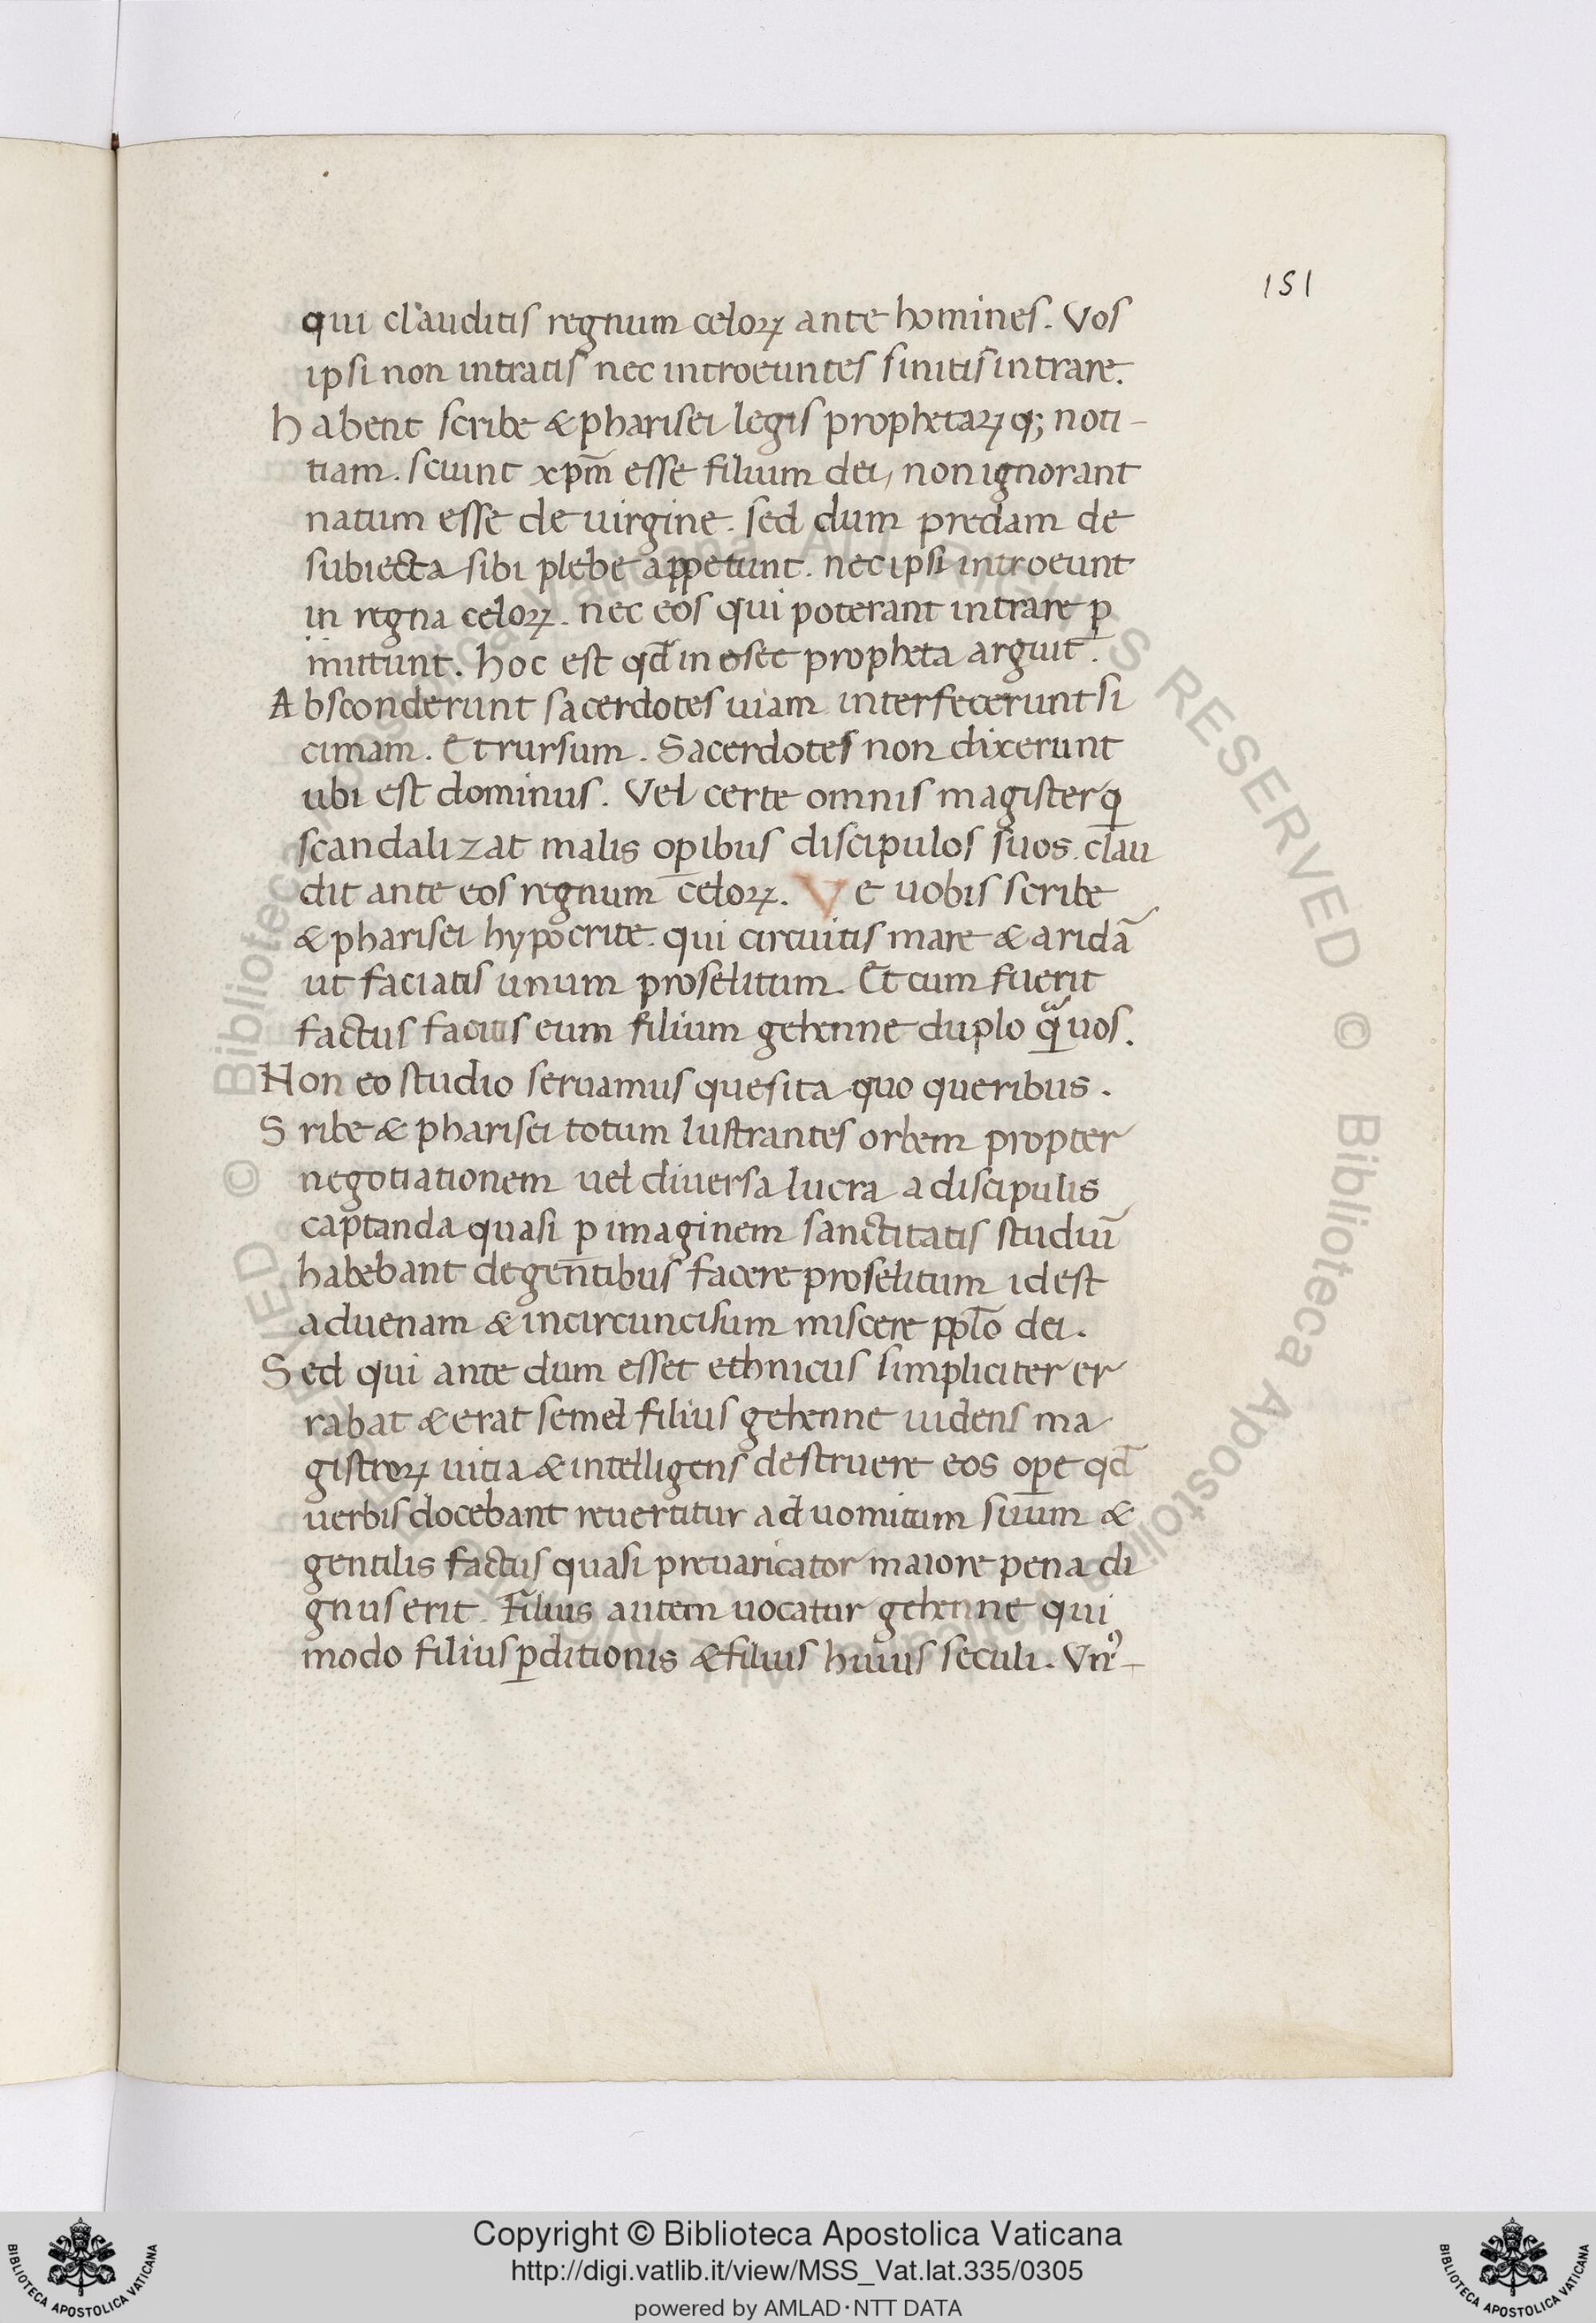 151
qui clauditis regnum celoꝝ ante homines. Vos
ipsi non intratis nec introeuntes sinitis intrare.
habent scribe & pharisei legis prophetaꝝ q; noti-
tiam. sciunt xp̄m esse filium dei, non ignorant
natum esse de uirgine. sed dum predam de
subiecta sibi plebe appetunt. nec ipsi introeunt
in regna celoꝝ. nec eos qui poterant intrare ꝑ
mittunt. hoc est qd̄ in osee propheta arguit.
Absconderunt sacerdotes uiam interfecerunt si
cimam. Et rursum. Sacerdotes non dixerunt
ubi est dominus. Vel certe omnis magister q
scandalizat malis oꝑibus discipulos suos. clau
dit ante eos regnum celoꝝ. Ve uobis scribe
& pharisei hypocrite. qui circuitis mare & aridā
ut faciatis unum proselitum. Et cum fuerit
factus facitis eum filium gehenne duplo qᵃuos.
Non eo studio seruamus quesita quo queribus.
Sribe & pharisei totum lustrantes orbem propter
negotiationem uel diuersa lucra a discipulis
captanda quasi ꝑ imaginem sanctitatis studiū
habebant de gentibus facere proselitum id est
aduenam & incircuncisum miscere pplo dei.
Sed qui ante dum esset ethnicus simpliciter er
rabat & erat semel filius gehenne uidens ma
gistroꝝ uitia & intelligens destruere eos oꝑe qd̄
uerbis docebant reuertitur ad uomitum suum &
gentilis factus quasi preuaricator maiore pena di
gnus erit. Filius autem uocatur gehenne qui
modo filius ꝑditionis & filius huius seculi. Vnꝰ-
© Biblioteca Apostolica Vaticana ALL RIGHTS RESERVED
Copyright © Biblioteca Apostolica Vaticana
http://digi.vatlib.it/view/MSS_Vat.lat.335/0305
powered by AMLAD·NTT DATA
BIBLIOTECA APOSTOLICA VATICANA
BIBLIOTECA APOSTOLICA VATICANA